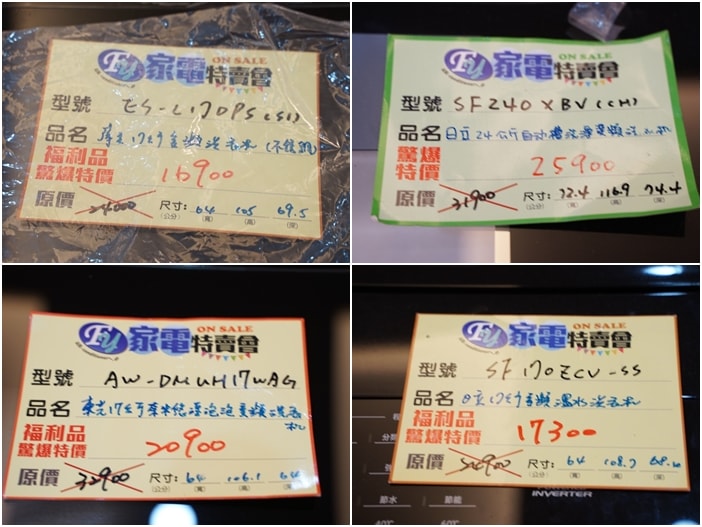 FN 家電 ON SALE 特賣會
型號 ES-L170PS(S1)
品名 聲寶17公斤變頻洗衣機(不銹鋼)
福利品
驚爆特價 16900
原價 24000 尺寸: 64 105 69.5
(公分) (寬) (高) (深)
FN 家電 ON SALE 特賣會
型號 SF240XBV(CH)
品名 日立24公斤自動槽洗淨變頻洗衣機
驚爆
特價 25900
原價 31900 尺寸: 72.4 116.9 74.4
(公分) (寬) (高) (深)
FN 家電 ON SALE 特賣會
型號 AW-DMUH17WAG
品名 東芝17公斤奈米悠浮泡泡變頻洗衣機
福利品
驚爆特價 20900
原價 32900 尺寸: 64 106.1 64
(公分) (寬) (高) (深)
FN 家電 ON SALE 特賣會
型號 SF170ZCV-SS
品名 日立17公斤變頻溫水洗衣機
福利品
驚爆特價 17300
原價 尺寸: 64 108.7
(公分) (寬) (高) (深)
節水 節能
INVERTER
40°C 60°C